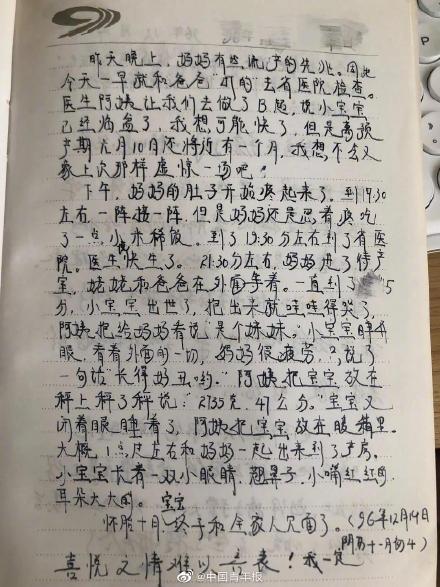 昨天晚上，妈妈有些流产的先兆。因此
今天一早就和爸爸“打的”去省医院检查。
医生阿姨让我们去做了B超，说小宝宝
已经满盆了，我想可能快了，但是离预
产期元月10日还将近有一个月，我想不会又
象上次那样虚惊一场吧！
下午，妈妈的肚子开始疼起来了，到17:30
左右一阵接一阵，但是妈妈还是忍着疼吃
了一点小米稀饭。到了19:30分左右到了省医
院。医生说快生了。21:30分左右，妈妈进了待产
室，姥姥和爸爸在外面等着。一直到了5
分，小宝宝出世了，抱出来就哇哇得哭了，
阿姨抱给妈妈看说“是个妹妹。”小宝宝睁开
眼，看看外面的一切，妈妈很疲劳，说了
一句话“长得好丑哟。”阿姨把宝宝放在
秤上秤了秤说：“2755克，47公分。”宝宝又
闭着眼睡着了，阿姨把宝宝放在暖箱里。
大概1点左右和妈妈一起出来到了产房。
小宝宝长着一双小眼睛，翘鼻子，小嘴红红的
耳朵大大的。宝宝
怀胎十月，终于和全家人见面了。（96年12月14日
阴历十一月初4）
喜悦之情难以言表！我一定
@中国青年报